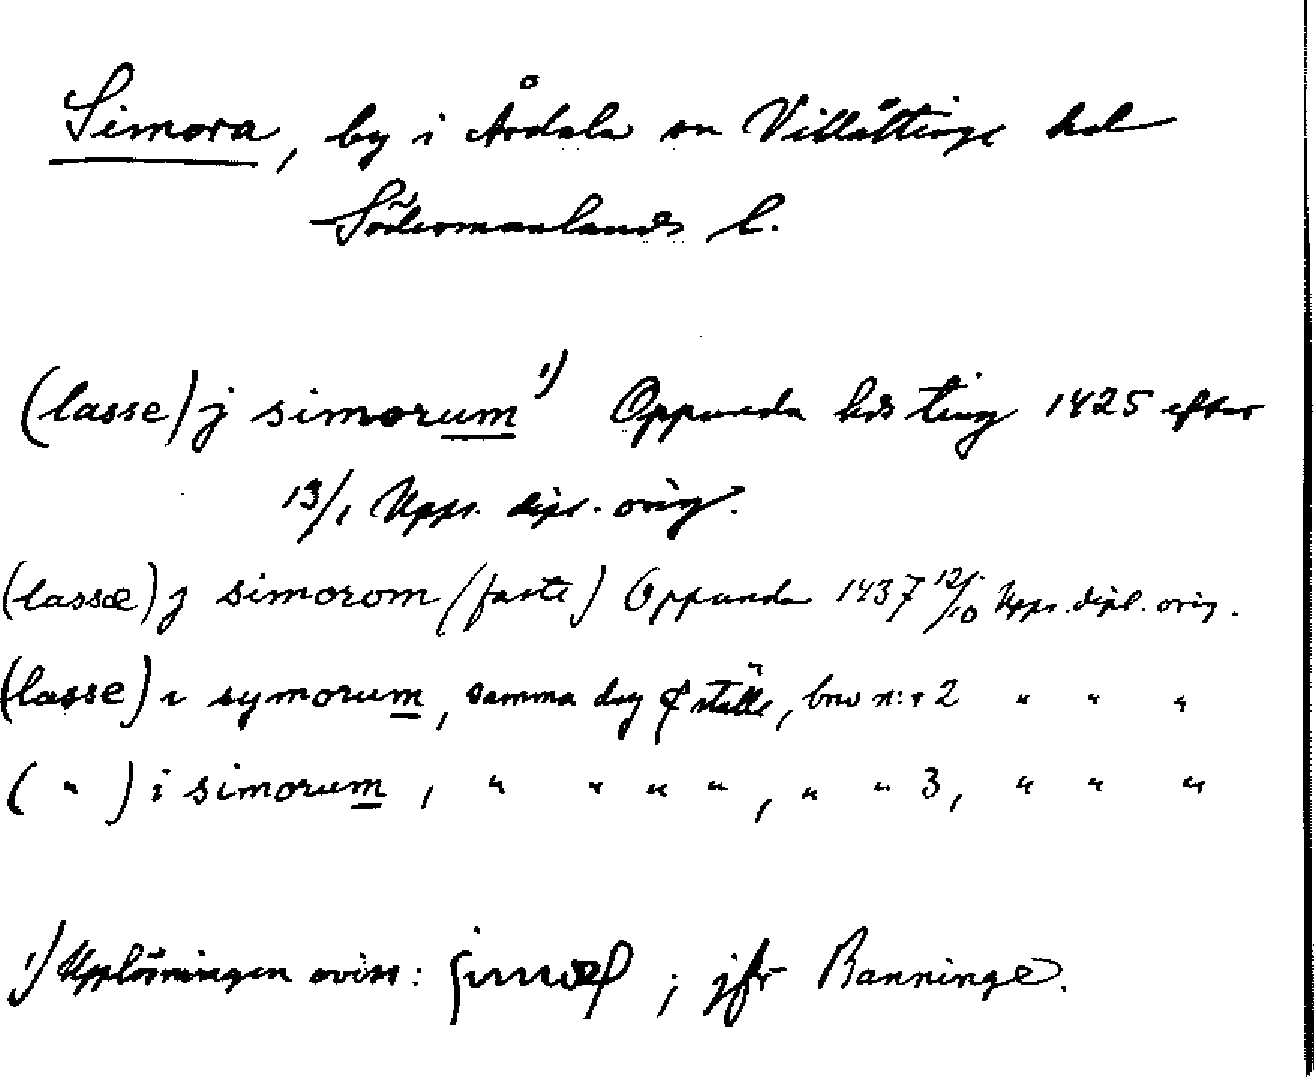 Simora, by i Årdala sn Villåttinge hd
Södermanlands l.
(lasse) j simorum ¹) Oppunda hds ting 1425 efter
13/1 Upps. dipl. orig.
(lassæ) j simorom (faste) Oppunda 1437 12/10 Upps. dipl. orig.
(lasse) i symorum, samma dag & ställe, brev n:r 2 " " "
( " ) i simorum, " " " " , " " 3, " " "
¹) Upplösningen oviss: ; jfr Banninge.